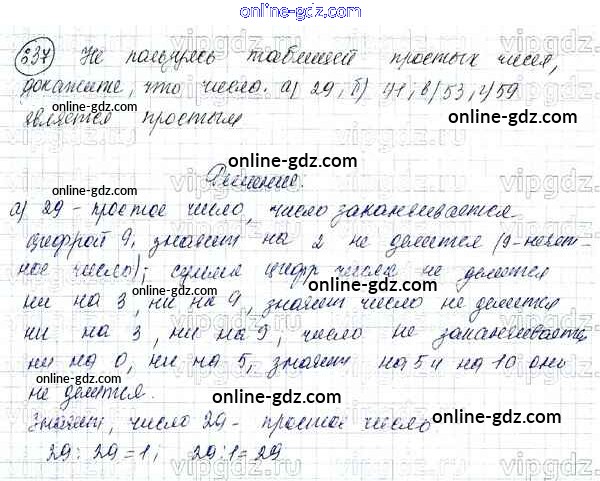 online-gdz.com
537 Не пользуясь таблицей простых чисел,
докажите, что число. а) 29, б) 41, в) 53, г) 59
является простым
online-gdz.com
Решение.
а) 29 - простое число, число заканчивается
цифрой 9, значит на 2 не делится (9-нечет-
ное число); сумма цифр числа не делится
ни на 3, ни на 9, значит число не делится
ни на 3, ни на 9, число не заканчивается
ни на 0, ни на 5, значит на 5 и на 10 оно
не делится.
Значит, число 29 - простое число.
29 : 29 = 1; 29 : 1 = 29
online-gdz.com
online-gdz.com
online-gdz.com
online-gdz.com
online-gdz.com
online-gdz.com